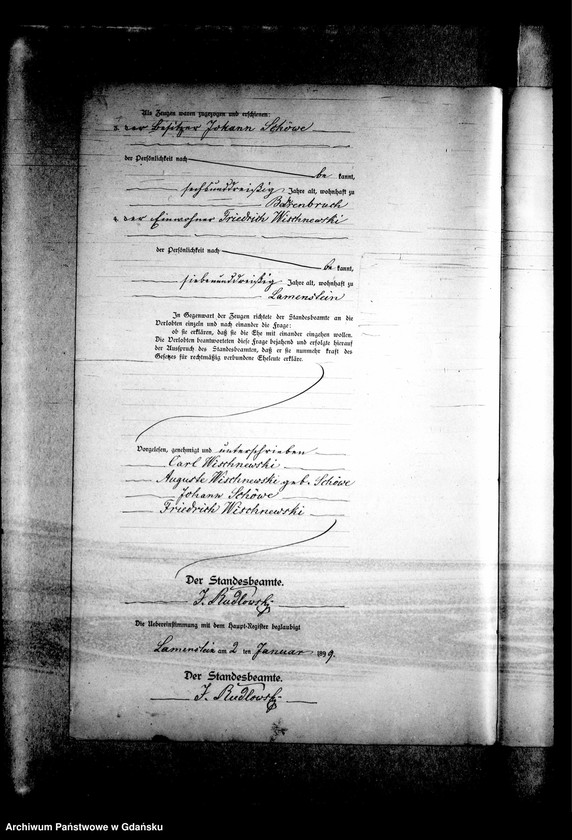 Als Zeugen waren zugezogen und erschienen:
1. der Besitzer Johann Schöwe
der Persönlichkeit nach
be kannt,
sechsunddreißig Jahre alt, wohnhaft zu
Bärenbruch
2. der Einwohner Friedrich Wischnewski
der Persönlichkeit nach
be kannt,
siebenunddreißig Jahre alt, wohnhaft zu
Lamenstein
In Gegenwart der Zeugen richtete der Standesbeamte an die
Verlobten einzeln und nach einander die Frage:
ob sie erklären, daß sie die Ehe mit einander eingehen wollen.
Die Verlobten beantworteten diese Frage bejahend und erfolgte hierauf
der Ausspruch des Standesbeamten, daß er sie nunmehr kraft des
Gesetzes für rechtmäßig verbundene Eheleute erkläre.
Vorgelesen, genehmigt und unterschrieben
Carl Wischnewski
Auguste Wischnewski geb. Schöwe
Johann Schöwe
Friedrich Wischnewski
Der Standesbeamte.
J. Rudlowski
Die Uebereinstimmung mit dem Haupt-Register beglaubigt
Lamenstein am 2 ten Januar 1899.
Der Standesbeamte.
J. Rudlowski
Archiwum Państwowe w Gdańsku